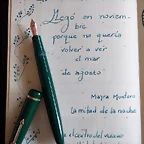 Llegó en noviem-
bre
porque no quería
volver a ver
el mar
de agosto
Mayra Montero
la mitad de la noche